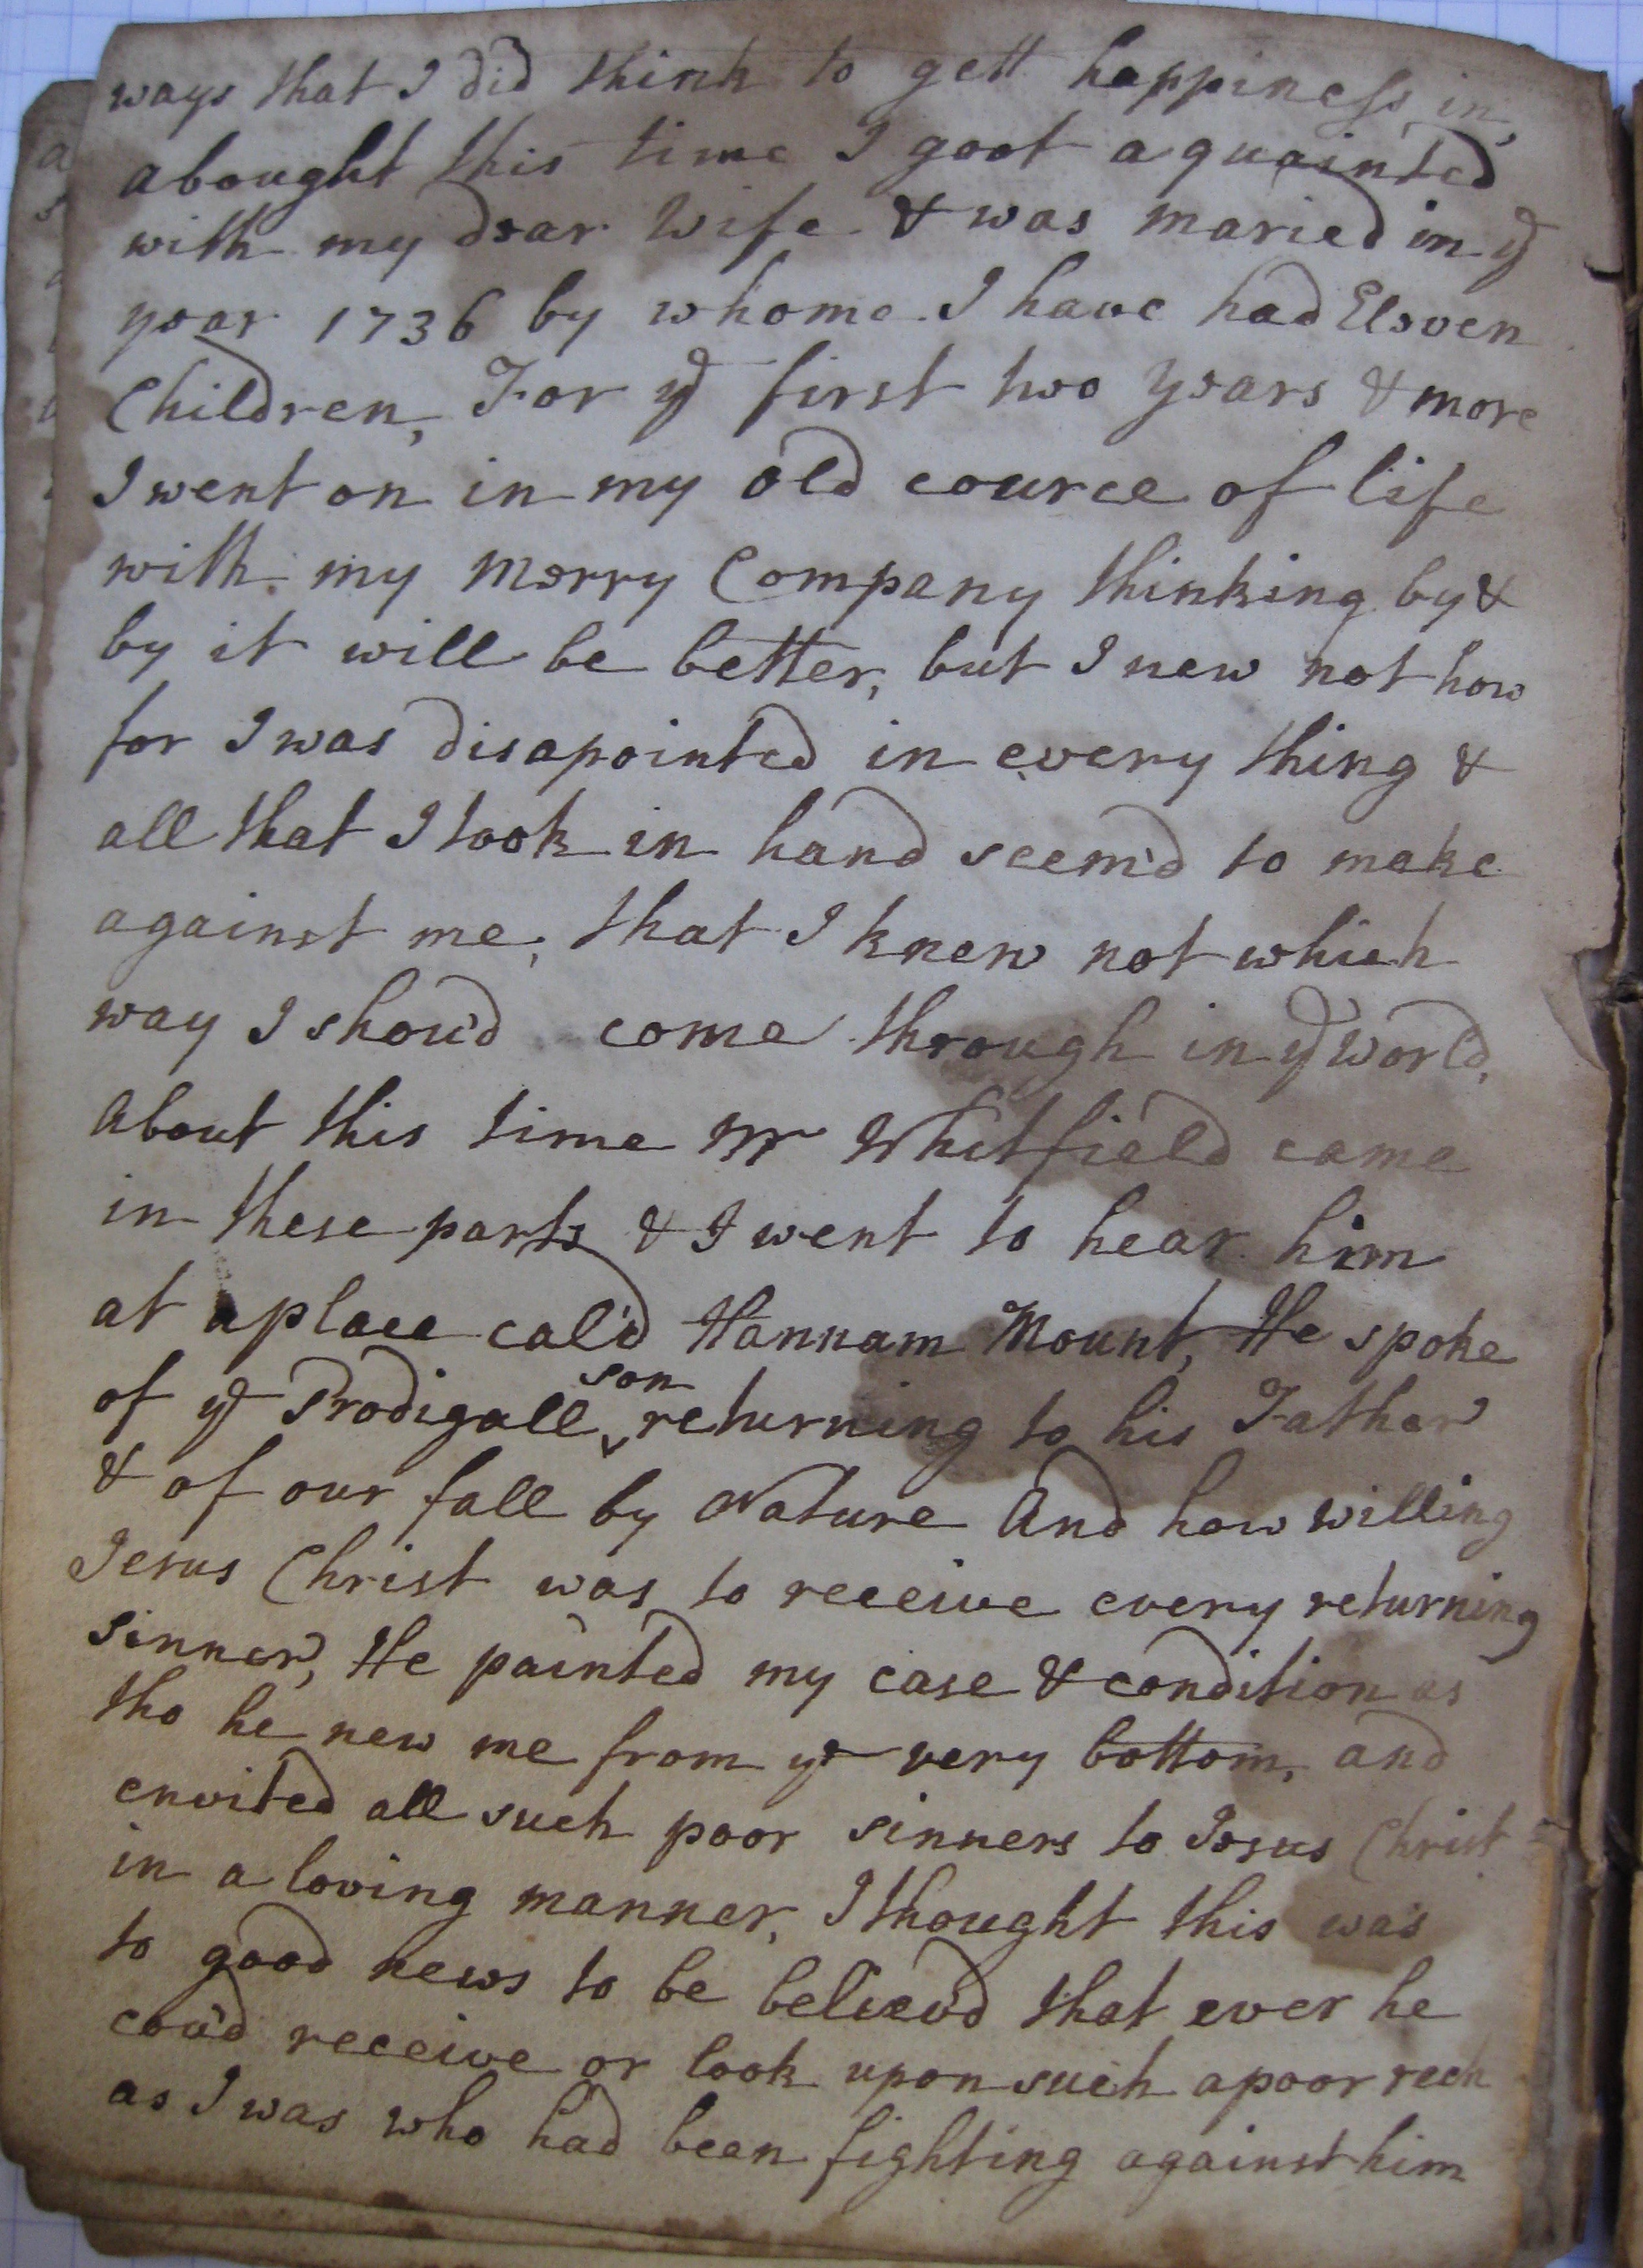 ways that I did think to gett happiness in,
abought this time I goot aquainted
with my dear Wife & was maried in ye
year 1736 by whome I have had Eleven
Children, For ye first two years & more
I went on in my old cource of life
with my merry Company thinking by &
by it will be better, but I new not how
for I was disapointed in every thing &
all that I took in hand seem'd to make
against me, that I knew not which
way I shou'd come through in ye World,
About this time Mr Whitfield came
in these parts & I went to hear him
at a place cal'd Hannam Mount, He spoke
of ye Prodigall son returning to his Father
& of our fall by Nature And how willing
Jesus Christ was to receive every returning
sinner, He painted my case & condition as
tho he new me from ye very bottom, and
envited all such poor sinners to Jesus Christ
in a loving manner, I thought this was
to good news to be believ'd that ever he
cou'd receive or look upon such a poor rech
as I was who had been fighting against him